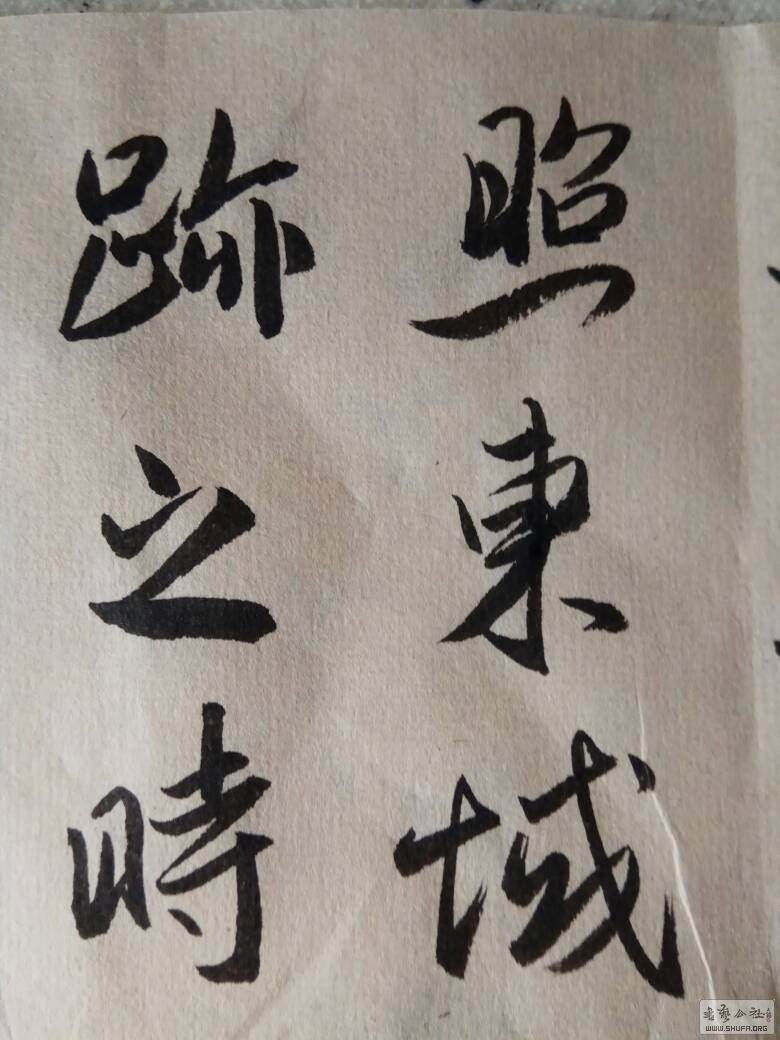 照東域
跡之時
書藝公社
WWW.SHUFA.ORG